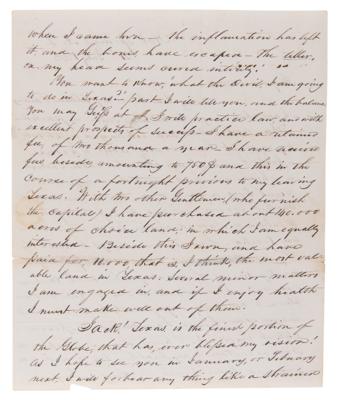 when I came here — the inflamation has left
it, and the bones have escaped — the
on my head seems cured intirely!
You want to know, "what the Devil, I am going
to do in Texas?" part I will tell you, and the balance
You may guess at. I will practice law, and with
excellent prospects of success — I have a retained
fee, of two thousand a year. I have received
fees besides amounting to 750$ and this in the
course of a fortnight previous to my leaving
Texas. With two other Gentlemen, (who furnish
the capital,) I have purchased about 140.000
acres of choice land; in which I am equally
interested — Beside this I own, and have
paid for, 10.000 that is, I think, the most valu-
able land in Texas. Several minor matters
I am engaged in, and if I enjoy health
I must make well out of them.
Jack! Texas is the finest portion of
the Globe, that has, ever blessed my vision!
As I hope to see you in January, or February
next, I will forbear any thing like a strained